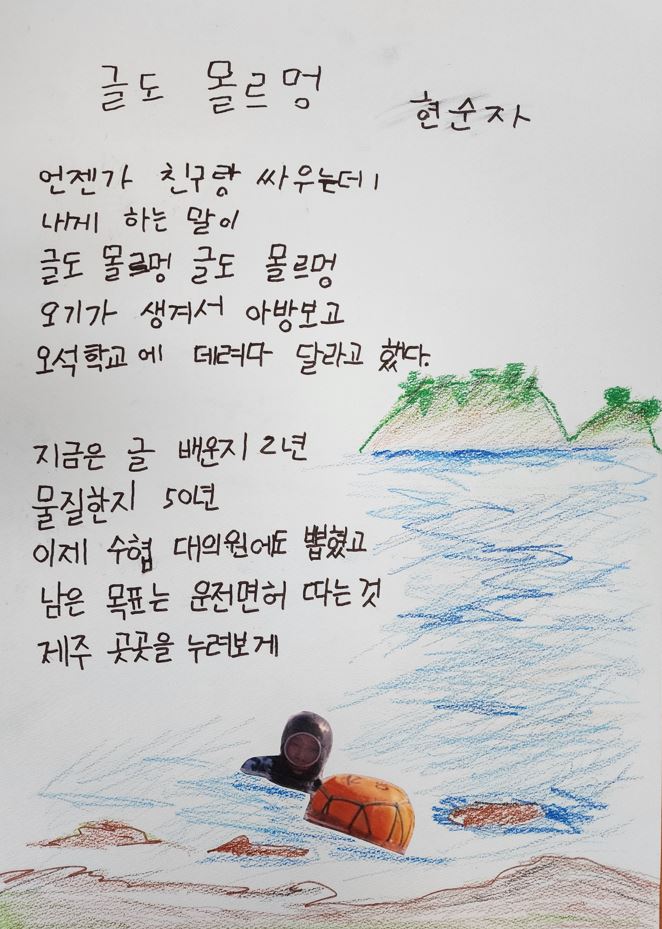 글도 몰르멍
현순자
언젠가 친구랑 싸우는데
내게 하는 말이
글도 몰르멍 글도 몰르멍
오기가 생겨서 아방보고
오석학교에 데려다 달라고 했다.
지금은 글 배운지 2년
물질한지 50년
이제 수협 대의원에도 뽑혔고
남은 목표는 운전면허 따는 것
제주 곳곳을 누려보게